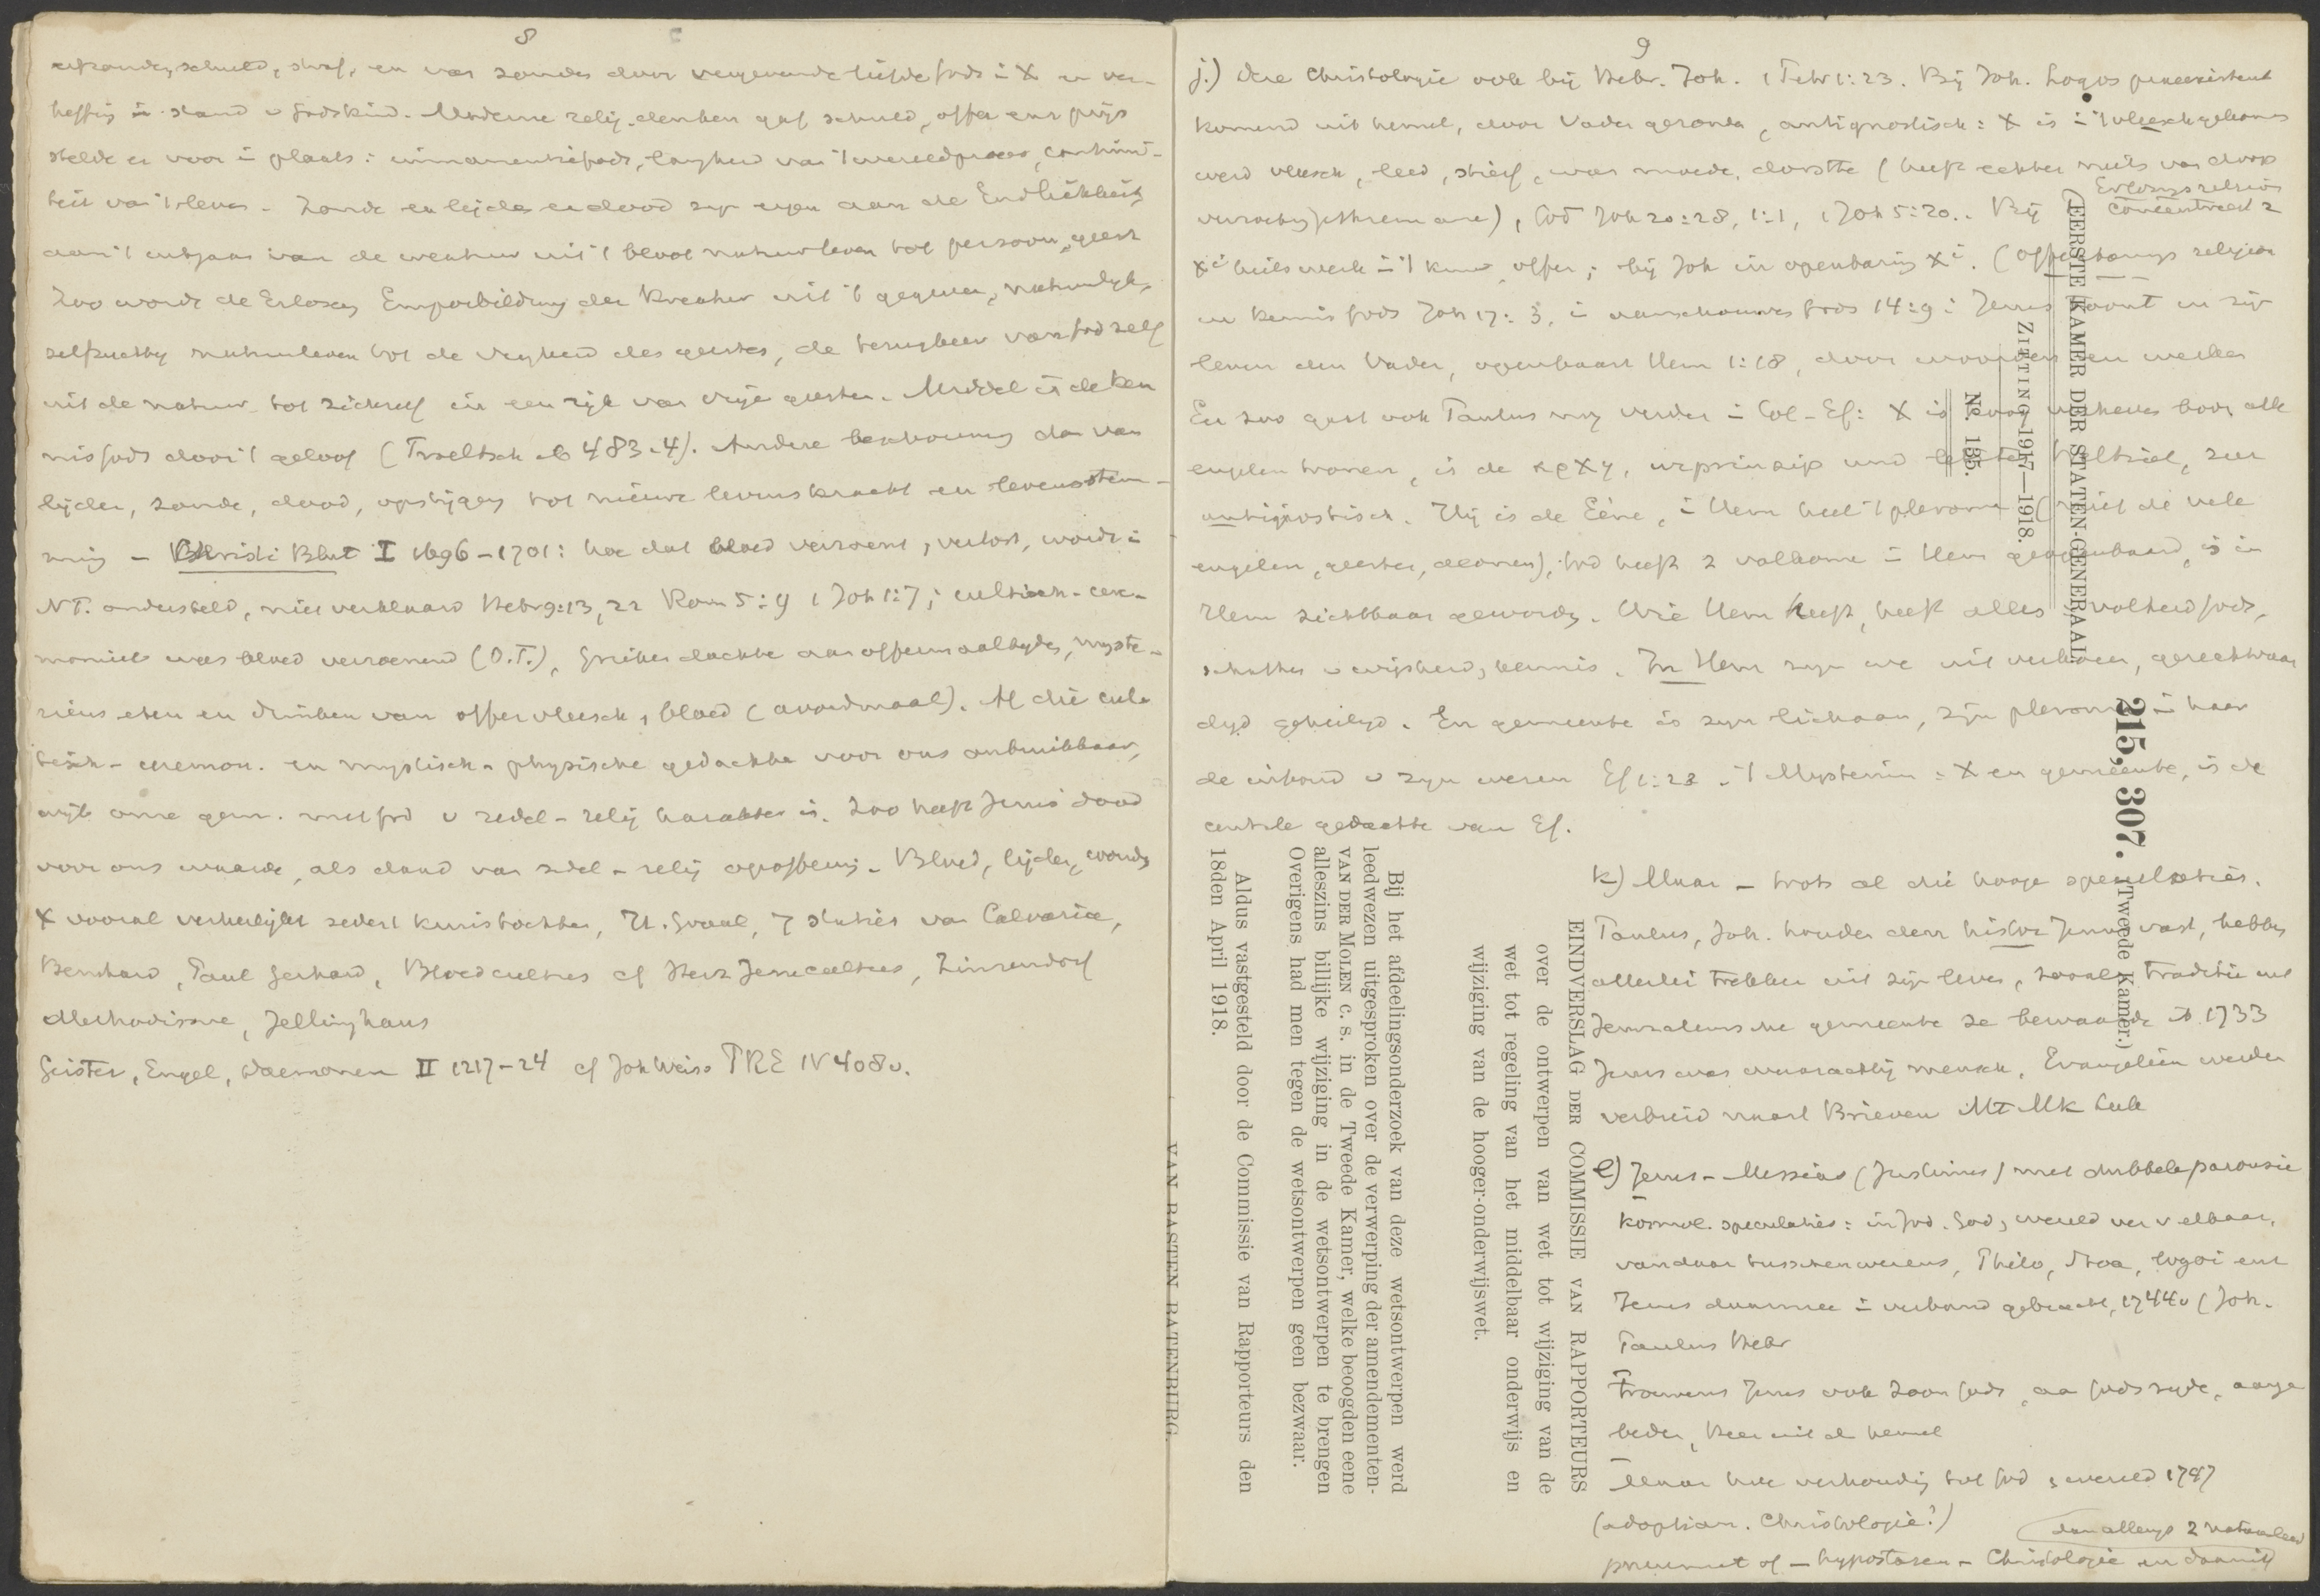 8
schuld, straf, en van zonden door vergevende liefde Gods i X en ver-
heffing in stand v Godskind. Moderne relig. denken gaf schuld, offer enz prijs
stelde er voor i plaats: immanentie Gods, van 't wereldproces, continu-
iteit van 't leven. Zonde en lijden en dood zijn eigen aan de Endlichkeit,
aan 't ontgaan van de creatuur uit 't bloot natuurleven tot persoon, geest
Zoo wordt de Erlosung Emporbildung der Kreatur uit 't gegeven, natuurlijk,
zelfzuchtig natuurleven tot de vrijheid des geestes, de terugkeer van God zelf
uit de natuur tot zichzelf in een rijk van vrije geesten. Middel is de ken
nis Gods door 't geloof (Troeltsch ib 483.4). Andere beschouwing dan van
lijden, zonde, dood, opstijgen tot nieuwe levenskracht en levensstem-
ming - Christi Blut I 1696-1701: hoe dat bloed verzoent, verlost, wordt i
NT. ondersteld, niet verklaard Hebr 9:13, 22 Rom 5:9 1 Joh 1:7; cultisch-cere-
monieel was bloed verzoenend (O.T.), Grieken dachten aan offermaaltijden, myste-
riëus eten en drinken van offervleesch, bloed (avondmaal). Al die cul-
tisch-ceremon. en mystisch-physische gedachte voor ons onbruikbaar,
wijl onze gem. met God v zedel-relig karakter is. Zoo heeft Jezus' dood
voor ons waarde, als daad van zedel-relig opoffering. Bloed, lijden, wonden
X vooral verheerlijkt sedert kruistochten, H. Graal, 7 staties van Calvarië,
Bernhard, Paul Gerhard, Bloedcultus cf Herz Jesucultus, Zinzendorf
Methodisme, Jellinghaus
Geister, Engel, Daemonen II 1217-24 cf Joh Weiss PRE IV 408v.
9
j.) Deze Christologie ook bij Hebr. Joh. 1 Petr 1:23. Bij Joh. Logos preexistent
komend uit hemel, door Vader gezonden, antignostisch: X is i 't vleesch gekomen
werd vleesch, leed, stierf, was moede, dorstte (heeft echter niets van doop
verzoeking Gethsemane), God Joh 20:28, 1:1, 1 Joh 5:20. Bij
Erlosungs religion
concentreert z
X i heilswerk i 't kruis, offer; bij Joh in openbaring X i. (Offenbarungs religion
en kennis Gods Joh 17:3, i aanschouwen Gods 14:9: Jezus toont in zijn
leven den Vader, openbaart Hem 1:18, door woorden en werken
En zoo gaat ook Paulus nog verder i Col-Ef: X is verheven boven alle
engelen tronen, is de αρχη, urprinzip und Weltziel, zeer
antignostisch. Hij is de Eéne, i Hem heel 't pleroma (niet de vele
engelen, geesten, aeonen), God heeft z volkomen i Hem geopenbaard, is in
Hem zichtbaar geworden. Wie Hem heeft, heeft alles, volheid Gods,
schatten v wijsheid, kennis. In Hem zijn we uitverkoren, gerechtvaar
digd geheiligd. En gemeente is zijn lichaam, zijn pleroma i haar
de inhoud v zijn wezen Ef 1:23. 't Mysterium: X en gemeente, is de
centrale gedachte van Ef.
k) Maar - trots al die hooge speculaties.
Paulus, Joh. houden den histor Jezus vast, hebben
allerlei trekken uit zijn leven, zooals traditie uit
Jeruzalemsche gemeente ze bewaarde ib 1733
Jezus was waarachtig mensch, Evangeliën werden
verbreid naast Brieven Mt Mk Luk
l) Jezus-Messias (Justinus) met dubbele parousie
kosmol. speculaties: in Jod. God, wereld
vandaar tusschenwezens, Philo, Stoa, logoi enz
Jezus daarmee i verband gebracht, 1744v (Joh.
Paulus Hebr
Trouwens Jezus ook Zoon Gods, aan Gods zijde, aange
beden, Heer uit de hemel
Maar hoe verhouding tot God, wereld 1747
(adoptian. Christologie?)
pneumat of - hypostasen - Christologie en daarmij
EERSTE KAMER DER STATEN-GENERAAL.
ZITTING 1917—1918.
No. 135.
215, 307.
(Tweede Kamer.)
EINDVERSLAG DER COMMISSIE VAN RAPPORTEURS
over de ontwerpen van wet tot wijziging van de
wet tot regeling van het middelbaar onderwijs en
wijziging van de hooger-onderwijswet.
Bij het afdeelingsonderzoek van deze wetsontwerpen werd
leedwezen uitgesproken over de verwerping der amendementen-
VAN DER MOLEN c. s. in de Tweede Kamer, welke beoogden eene
alleszins billijke wijziging in de wetsontwerpen te brengen
Overigens had men tegen de wetsontwerpen geen bezwaar.
Aldus vastgesteld door de Commissie van Rapporteurs den
18den April 1918.
VAN BASTEN BATENBURG.